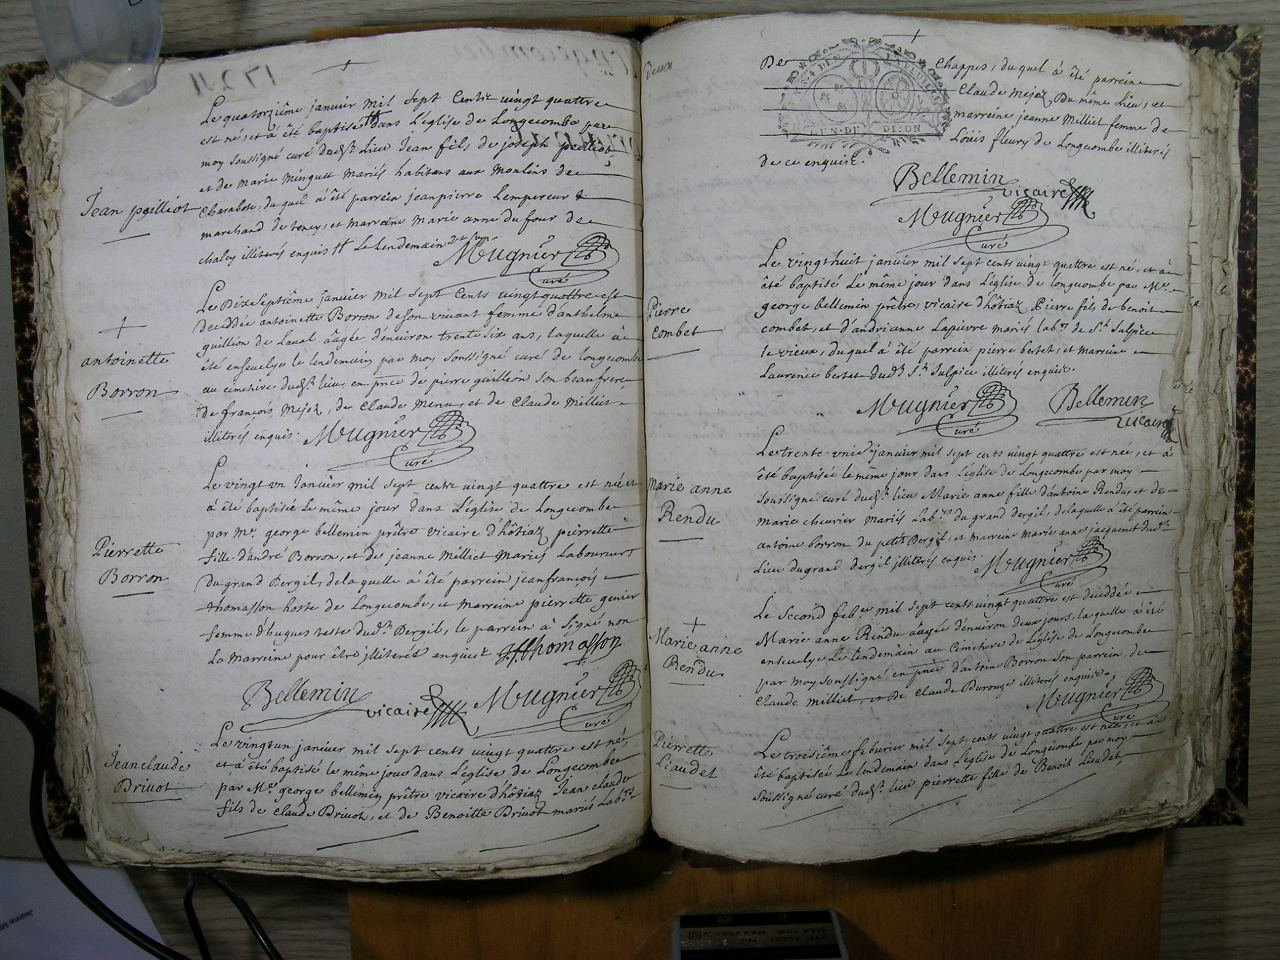 1724
Jean peilliot
Le quatorzième janvier mil sept Cents vingt quattre
est né, et a été baptisé dans L'eglise de Longecombe par
moy soussigné curé dud.t Lieu Jean fils de joseph peilliot
et de Marie Minguet mariés habitans aux moulins de
Charabote, duquel a été parrein jeanpierre Lempereur
marchand de tenay, et marreine marie anne du four de
chaley illiterés enquis Le Lendemain
Mugnier
Curé
antoinette
Borron
Le Dixseptième janvier mil sept cents vingt quattre est
deceddée antoinette Borron de son vivant femme d'anthelme
guillion de Laval aagée d'environ trente six ans, laquelle a
été ensevelye le lendemain par moy soussigné curé de longecombe
au cimetière dud.t lieu, en pñce de pierre guillion son beaufrere
de françois Mejoz, de Claude Menu, et de Claude Milliet
illiterés enquis.
Mugnier
Curé
Pierrette
Borron
Le vingt un Janvier mil sept cents vingt quattre est née et
a été baptisée Le même jour dans L'eglise de Longecombe
par m.re george bellemin prêtre vicaire d'hôtiaz pierrette
fille d'andré Borron, et de jeanne Milliet Mariés Laboureurs
du grand Dergil, de laquelle a été parrein jeanfrançois
thomasson hoste de Longecombe, et marreine pierrette genier
femme d'hugues teste dud.t Dergil, le parrein a signé non
La marreine pour être illiterée enquise
Thomasson
Bellemin
vicaire
Mugnier
Curé
Jeanclaude
Brivot
Le vingtun janvier mil sept cents vingt quattre est né,
et a été baptisé le même jour dans L'eglise de Longecombe
par M.re george bellemin prêtre vicaire d'hôtiaz Jean claude
fils de claude Brivot, et de Benoitte Brivot mariés Lab.rs
De Chappes, duquel à été parrein
Claude Mejoz Du même Lieu, et
marreine jeanne Milliet femme de
Louis fleury de Longecombe illiterés
GEN. DE DIJON
de ce enquis.
Bellemin
vicaire
Mugnier
Curé
Pierre
Combet
Le vingt huit janvier mil sept cents vingt quattre est né, et a
été baptisé Le même jour dans L'eglise de Longecombe par M.re
george bellemin prêtre, vicaire d'hôtiaz Pierre fils de benoit
combet, et d'andrianne Lapierre mariés lab.rs de S.t Sulpice
le vieux, duquel a été parrein pierre bertet, et marreine
Laurence bertet dud.t S.t Sulpice illiterés enquis.
Mugnier
Curé
Bellemin
vicaire
Marie anne
Rendu
Le trente unie janvier mil sept cents vingt quattre est née, et a
été baptisée le même jour dans L'eglise de Longecombe par moy
soussigné curé dud.t lieu Marie anne fille d'antoine Rendu, et de
marie chevrier mariés Lab.rs du grand dergil, de laquelle a été parrein
antoine borron du petit Dergil, et marreine marie anne jacquemet dud.t
Lieu du grand dergil illiterés enquis
Mugnier
Curé
Marie anne
Rendu
Le second feb.er mil sept cents vingt quattre est deceddée
Marie anne Rendu aagée d'environ deux jours, laquelle a été
ensevelye Le Lendemain au Cimetière de L'eglise de Longecombe
par moy soussigné en pñce d'antoine Borron son parrein, de
Claude milliet, et De Claude Durouge illiterés enquis
Mugnier
Curé
Pierrette
Liaudet
Le troisième febvrier mil sept cents vingt quattre est née, et a
été baptisée Le lendemain dans L'eglise de Longecombe par moy
soussigné curé dud.t lieu pierrette fille de Benoit Liaudet